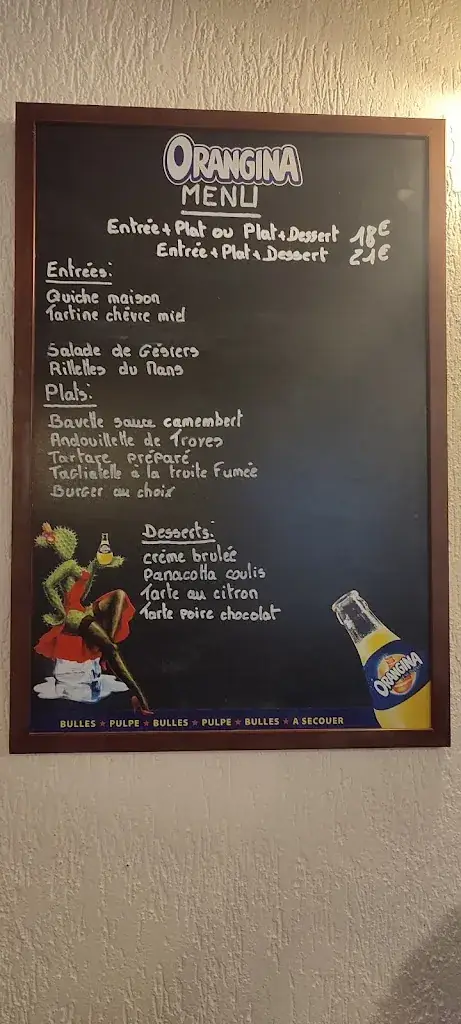 ORANGINA
MENU
Entrée + Plat ou Plat + Dessert 18€
Entrée + Plat + Dessert 21€
Entrées:
Quiche maison
Tartine chévre miel
Salade de Gésiers
Rillettes du Mans
Plats:
Bavette sauce camembert
Andouillette de Troyes
Tartare préparé
Tagliatelle à la truite Fumée
Burger au choix
Desserts:
créme brulée
Panacotta coulis
Tarte au citron
Tarte poire chocolat
ORANGINA
BULLES ★ PULPE ★ BULLES ★ PULPE ★ BULLES ★ A SECOUER